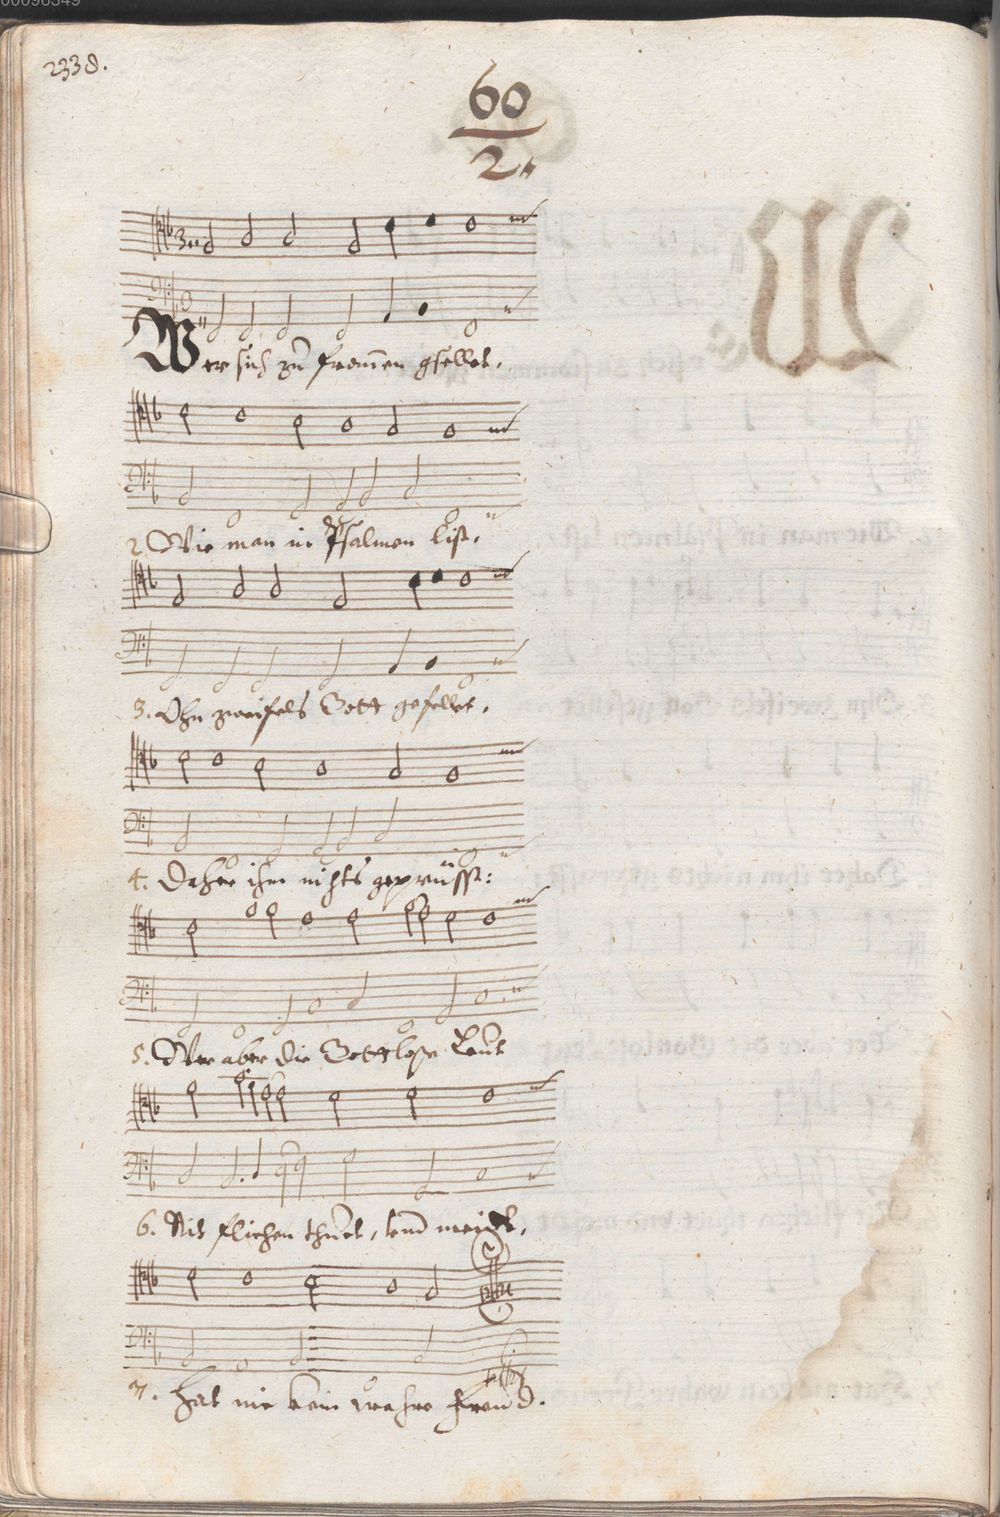 00096349
2338.
60
2.
3
Wer sich zu fromen gsellet,
2. Wie man in Psalmen list,
3. Ohn zweifels Gott gefellet,
4. Daher ihm nichts geprüsst:
5. Wer aber die Gottlose Leut
6. Nit fliehen thuet, vnd meidt,
7. Hat nie kein wahre Freud.